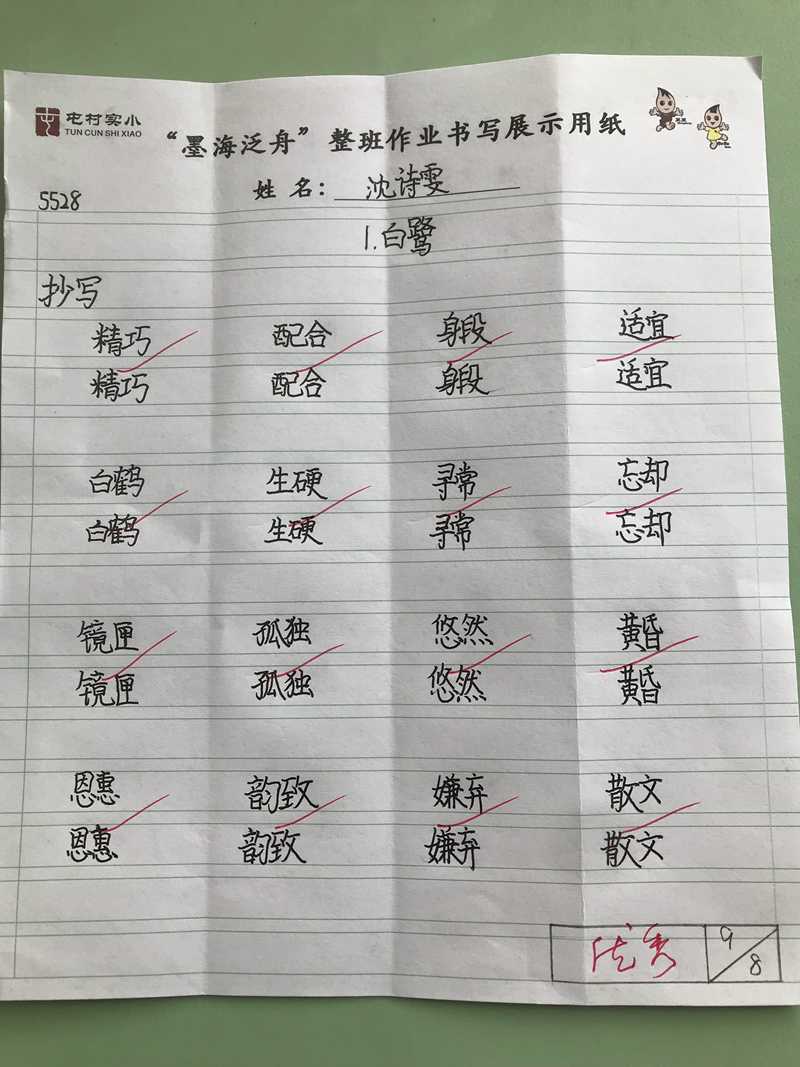 屯村实小
TUN CUN SHI XIAO
“墨海泛舟”整班作业书写展示用纸
姓 名：沈诗雯
5528
1.白鹭
抄写
精巧 配合 身段 适宜
精巧 配合 身段 适宜
白鹤 生硬 寻常 忘却
白鹤 生硬 寻常 忘却
镜匣 孤独 悠然 黄昏
镜匣 孤独 悠然 黄昏
恩惠 韵致 嫌弃 散文
恩惠 韵致 嫌弃 散文
优秀 9/8